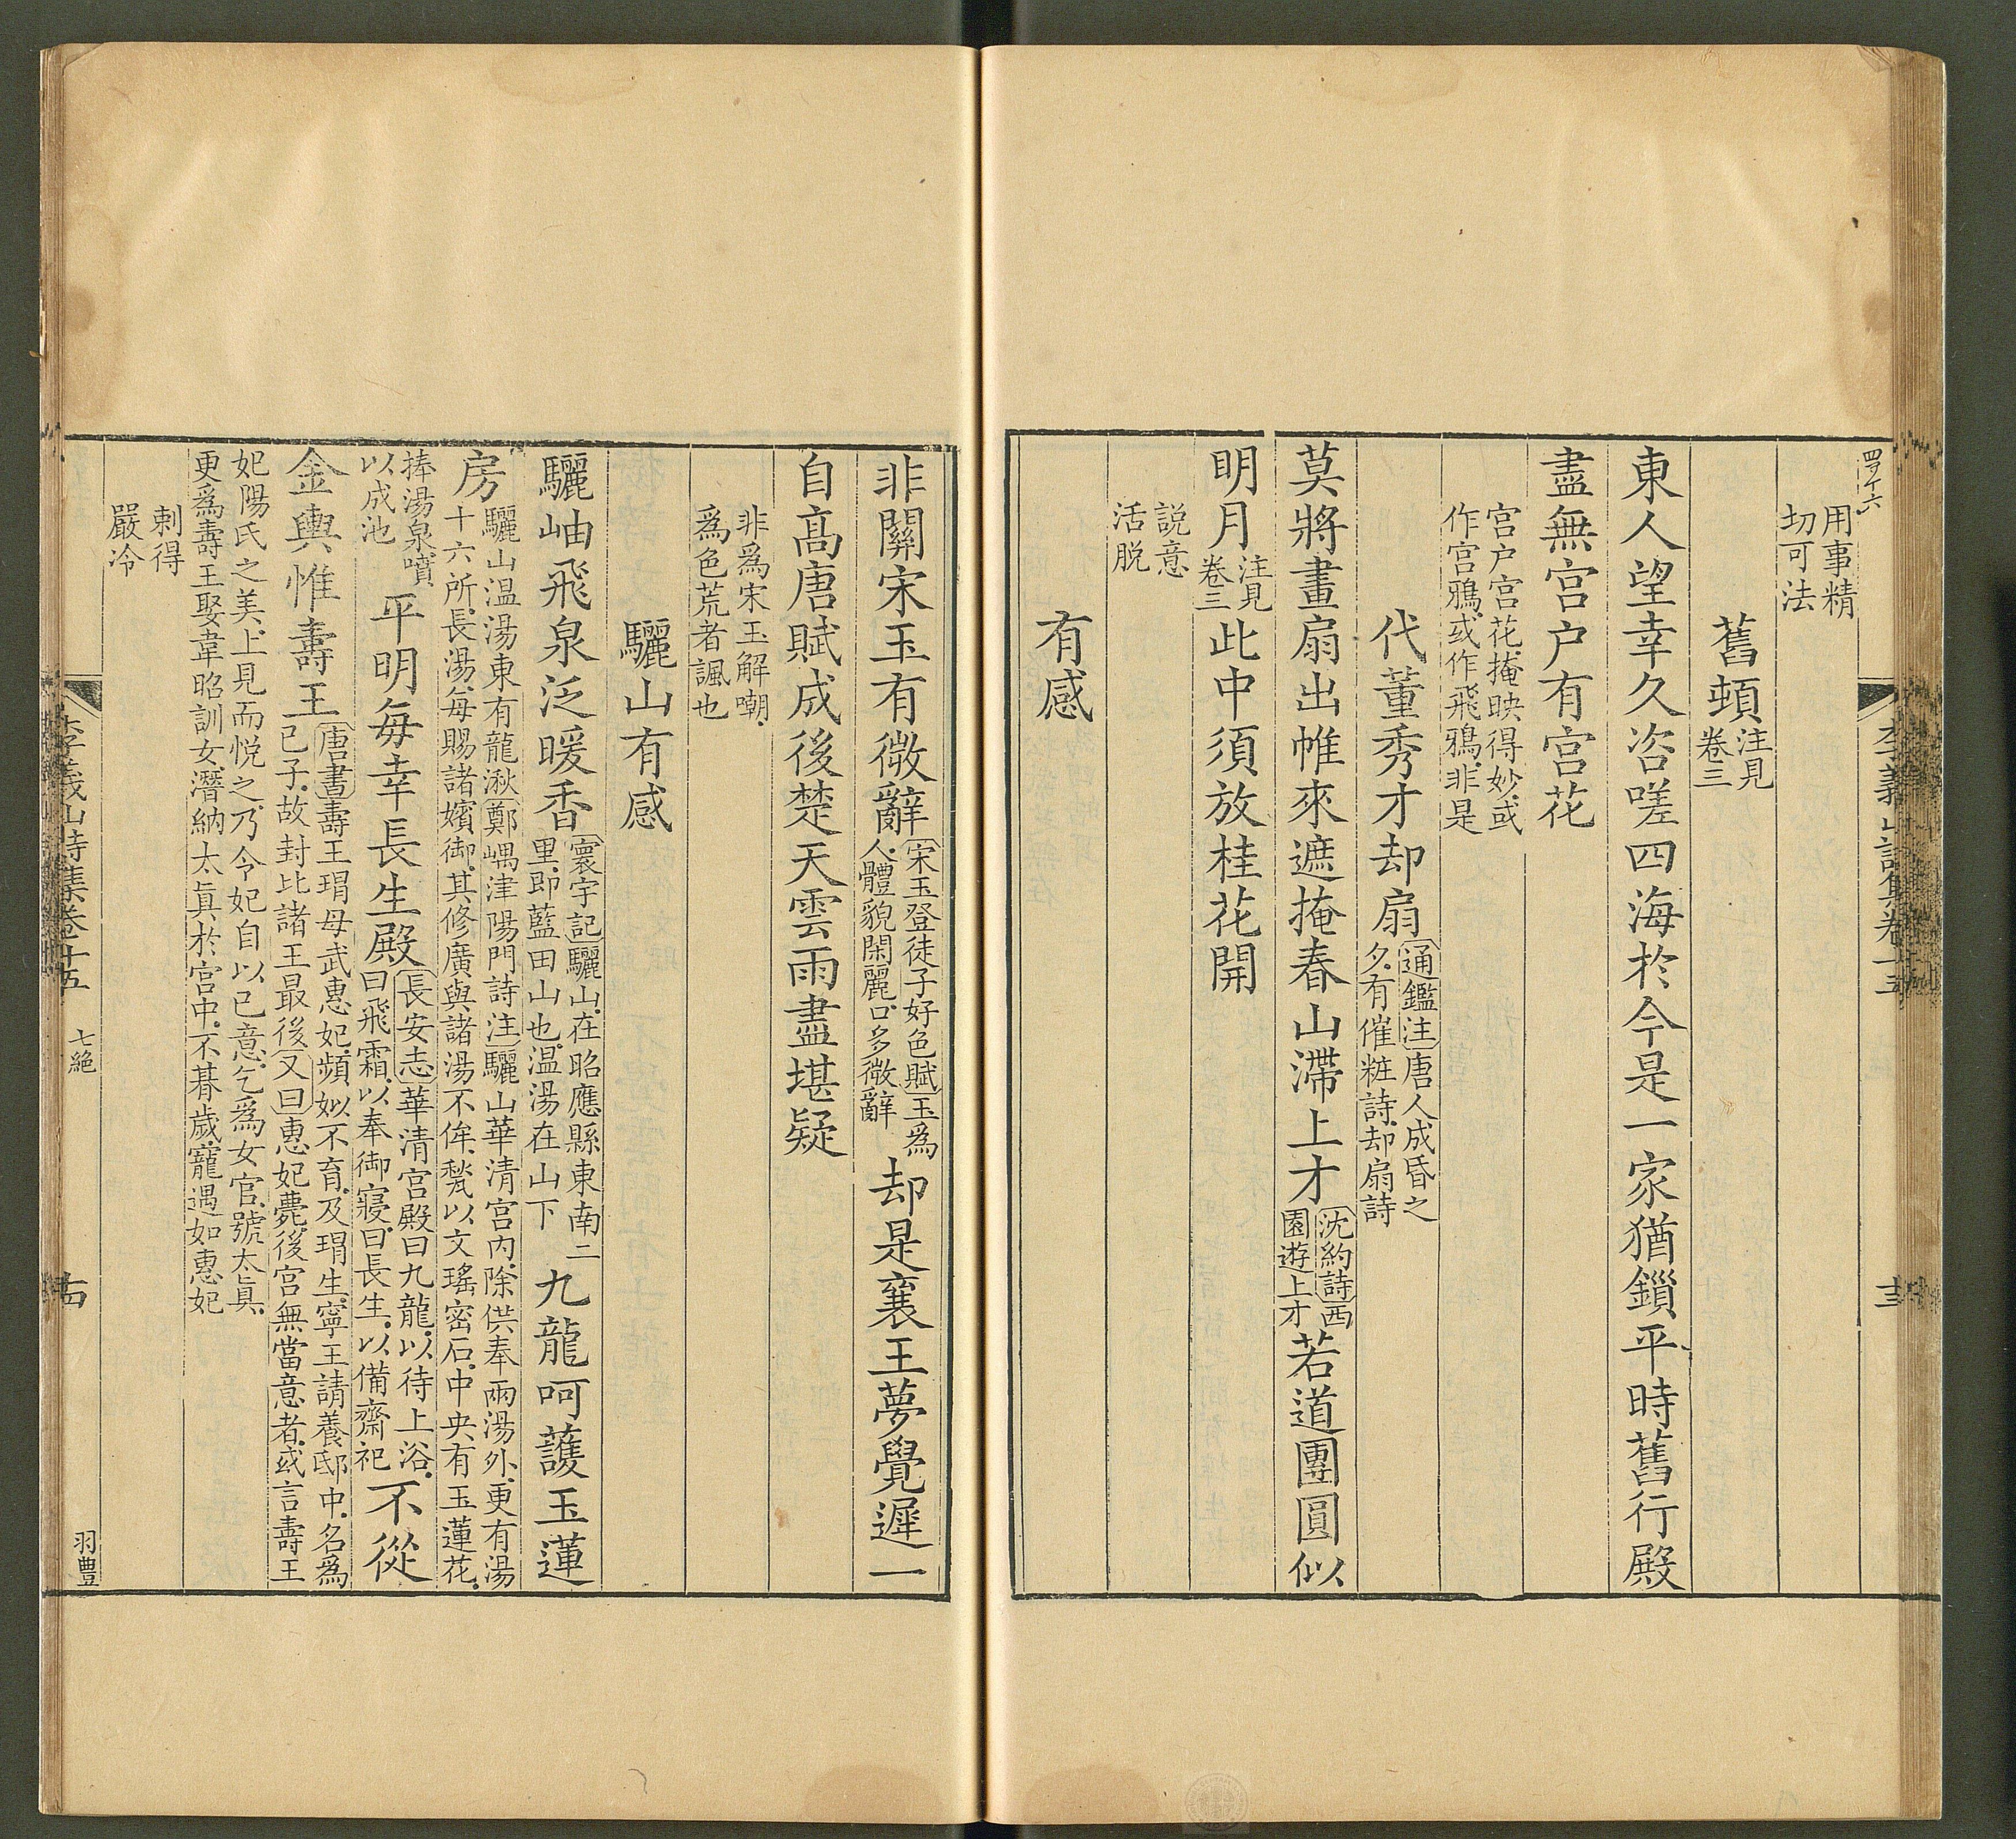 四十六
用事精
切可法
舊頓注見
卷三
東人望幸久咨嗟四海於今是一家猶鎖平時舊行殿
盡無宮户有宮花
宮户宮花掩映得妙或
作宮鴉或作飛鴉非是
代董秀才却扇通鑑注唐人成昏之
夕有催粧詩却扇詩
莫將畫扇出帷來遮掩春山滯上才沈約詩西
園遊上才若道團圓似
明月注見
卷三此中須放桂花開
説意
活脱
有感
非關宋玉有微辭宋玉登徒子好色賦玉爲
人體貌閑麗口多微辭却是襄王夢覺遲一
自高唐賦成後楚天雲雨盡堪疑
非爲宋玉解嘲
爲色荒者諷也
驪山有感
驪岫飛泉泛暖香寰宇記驪山在昭應縣東南二
里即藍田山也温湯在山下九龍呵護玉蓮
房驪山温湯東有龍湫鄭嵎津陽門詩注驪山華清宮内除供奉兩湯外更有湯
十六所長湯每賜諸嬪御其修廣與諸湯不侔甃以文瑤密石中央有玉蓮花
捧湯泉噴
以成池平明每幸長生殿長安志華清宮殿曰九龍以待上浴
曰飛霜以奉御寢曰長生以備齋祀不從
金輿惟壽王唐書壽王瑁母武惠妃頻姒不育及瑁生寧王請養邸中名爲
己子故封比諸王最後又曰惠妃薨後宮無當意者或言壽王
妃陽氏之美上見而悦之乃令妃自以己意乞爲女官號太眞
更爲壽王娶韋昭訓女潛納太眞於宮中不朞歲寵遇如惠妃
刺得
嚴冷
李義山詩集卷十五 七絶 十四 羽豐